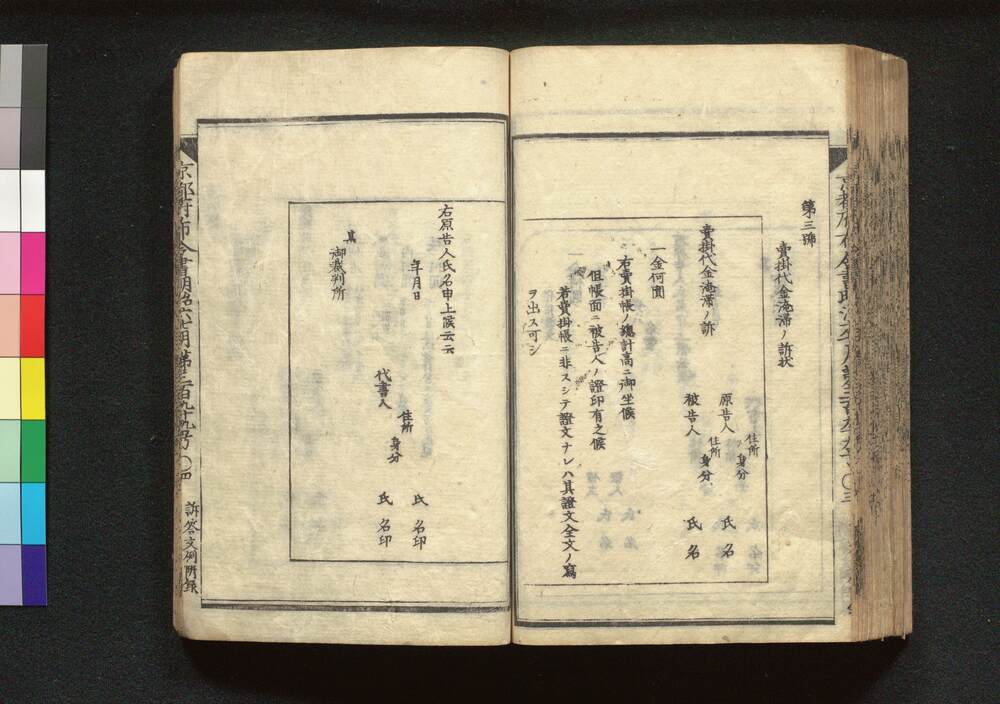 第三號
賣掛代金淹滯ノ訴状
原告人 住所 身分 氏名
被告人 住所 身分 氏名
賣掛代金淹滯ノ訴
一金何圓
右賣掛帳ノ總計高ニ御坐候
但帳面ニ被告人ノ證印有之候
若賣掛帳ニ非スシテ證文ナレハ其證文全文ノ寫
ヲ出ス可シ
右原告人氏名申上候云云
年月日
氏名印
代書人 住所 身分 氏名印
某
御裁判所
京都府布令書明治六七月第三百九十九号 〇四 訴答文例附録